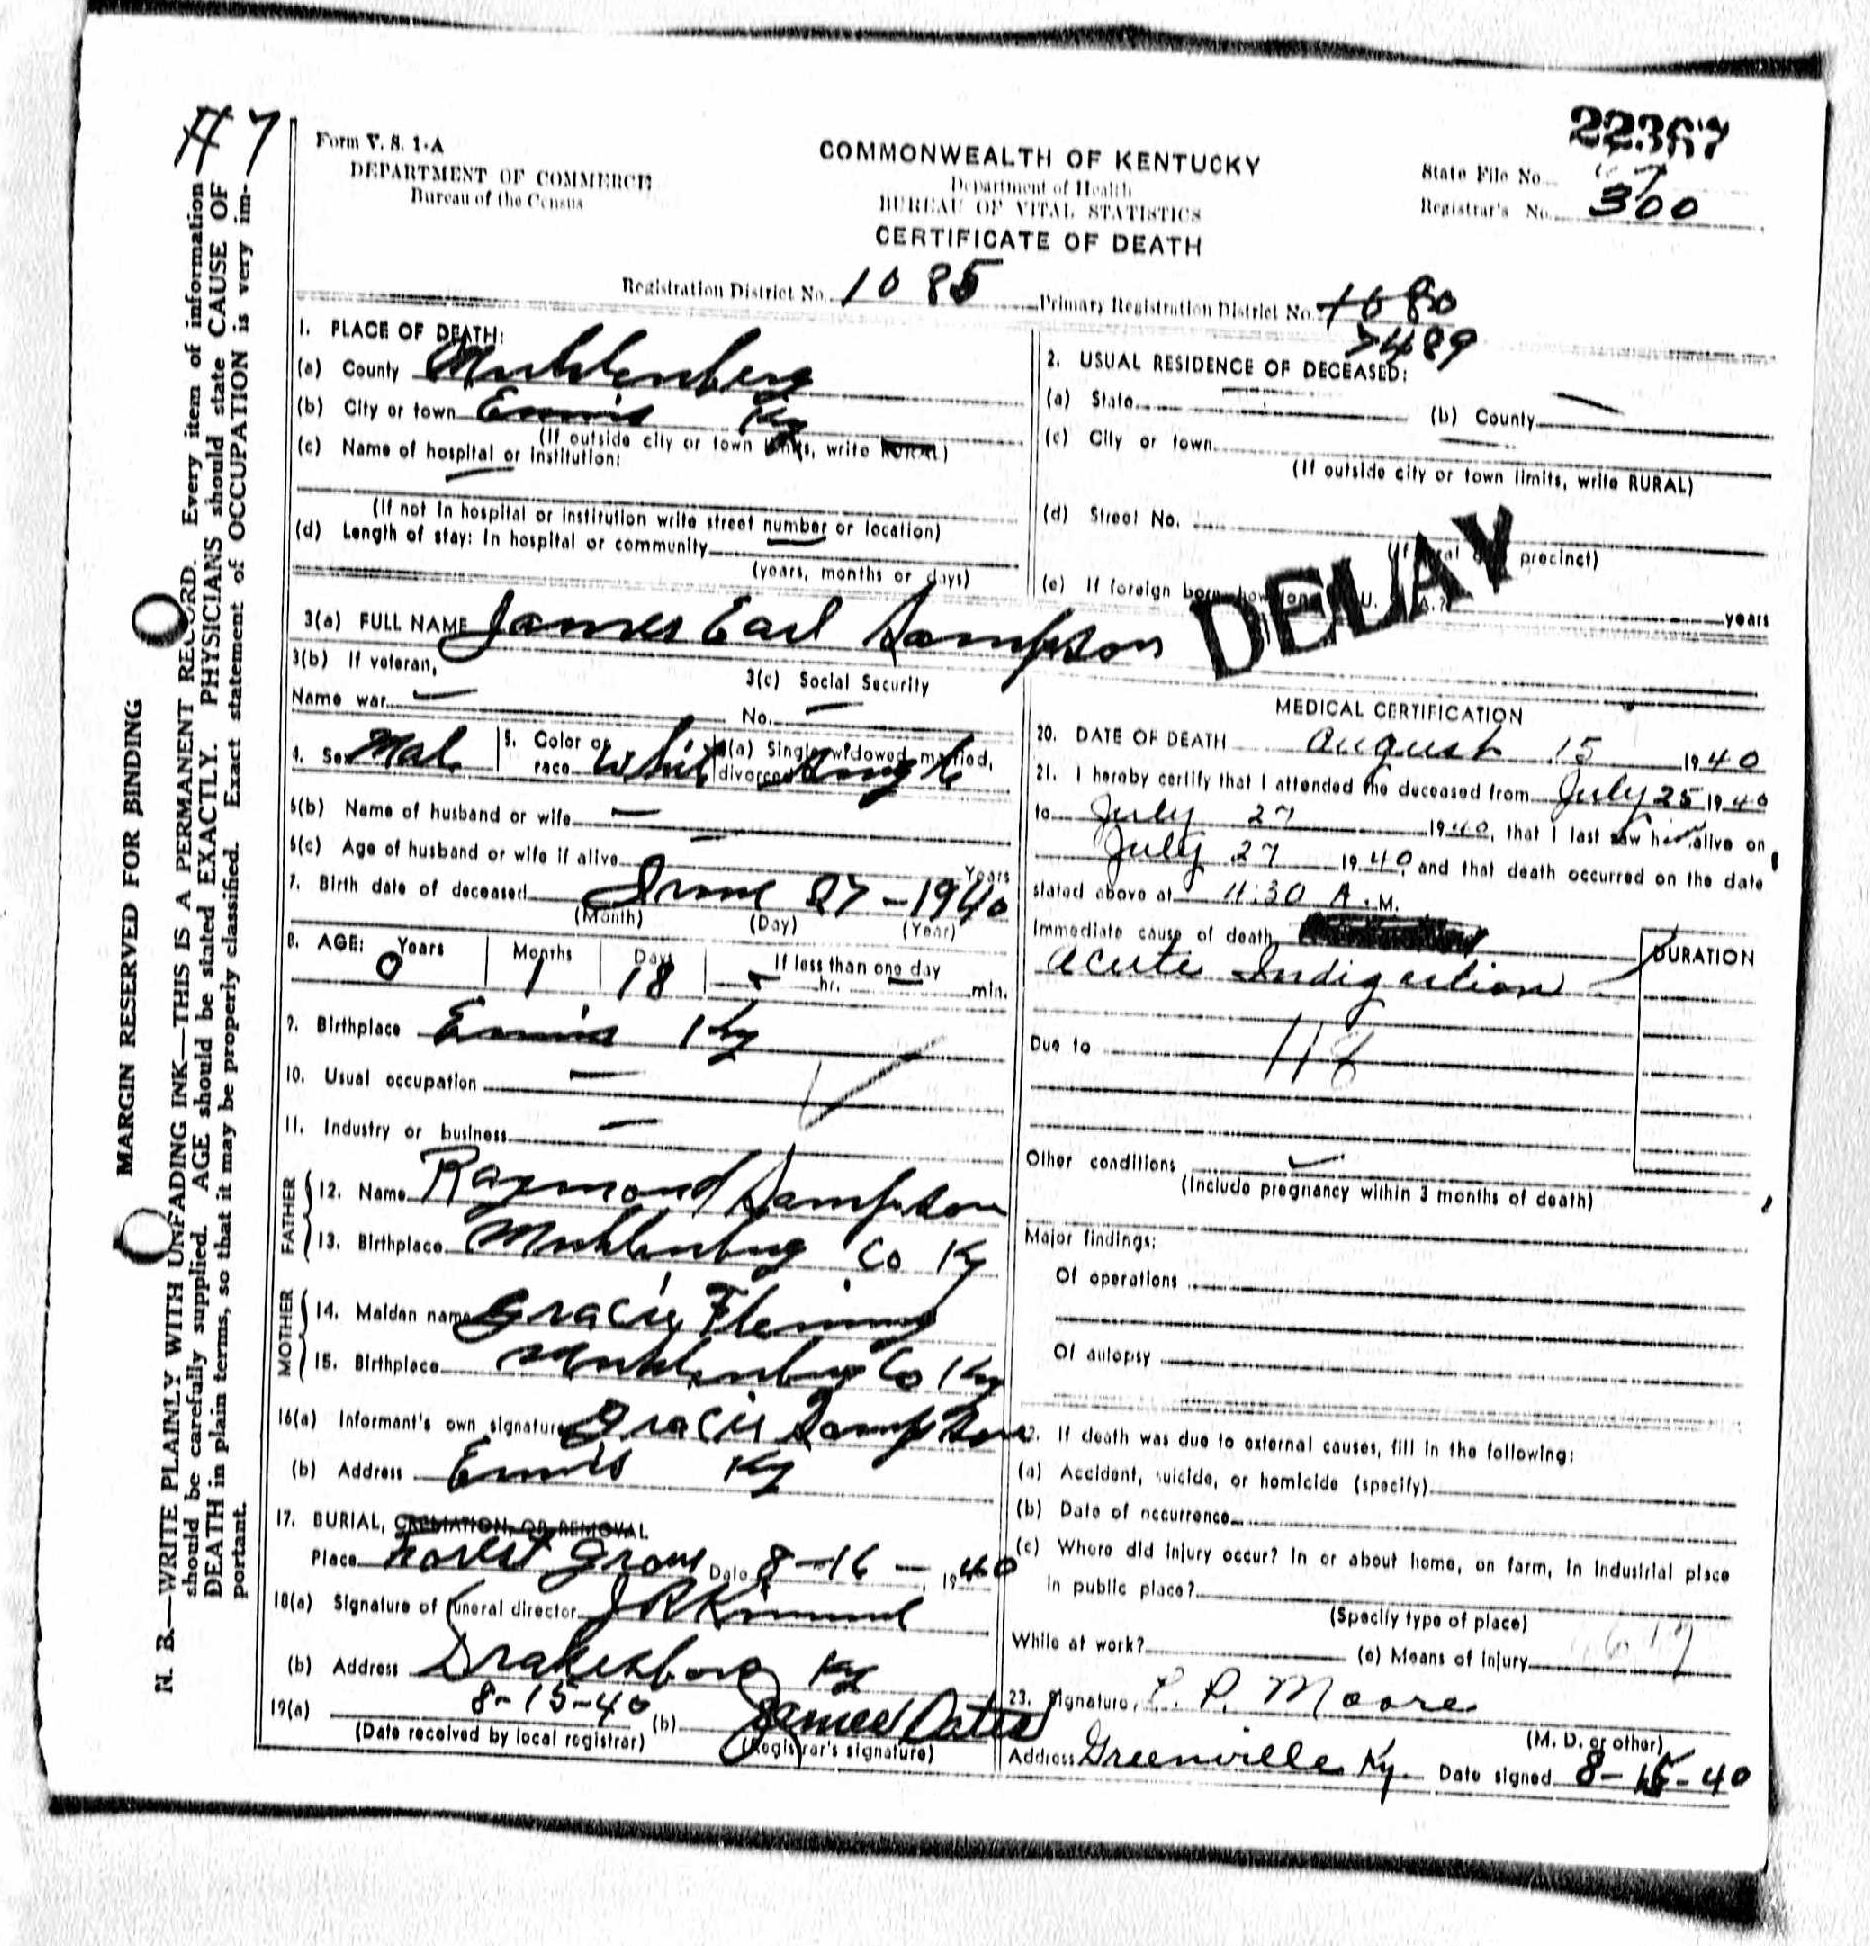 #7
Form V. S. 1-A
DEPARTMENT OF COMMERCE
Bureau of the Census
COMMONWEALTH OF KENTUCKY
Department of Health
BUREAU OF VITAL STATISTICS
CERTIFICATE OF DEATH
State File No.
Registrar's No. 300
Registration District No. 1085
Primary Registration District No. 1080
7489
MARGIN RESERVED FOR BINDING
N. B.—WRITE PLAINLY WITH UNFADING INK—THIS IS A PERMANENT RECORD. Every item of information
should be carefully supplied. AGE should be stated EXACTLY. PHYSICIANS should state CAUSE OF
DEATH in plain terms, so that it may be properly classified. Exact statement of OCCUPATION is very im-
portant.
1. PLACE OF DEATH:
(a) County Muhlenberg
(b) City or town Ennis Ky
(If outside city or town limits, write RURAL)
(c) Name of hospital or institution:
(If not in hospital or institution write street number or location)
(d) Length of stay: In hospital or community
(years, months or days)
2. USUAL RESIDENCE OF DECEASED:
(a) State (b) County
(c) City or town
(If outside city or town limits, write RURAL)
(d) Street No.
precinct)
(e) If foreign born, how long U. A.? years
DELAY
3(a) FULL NAME James Earl Sampson
3(b) If veteran,
Name war
3(c) Social Security
No.
4. Sex Male 5. Color or race White 6(a) Single, widowed, married, divorced Single
6(b) Name of husband or wife
6(c) Age of husband or wife if alive Years
7. Birth date of deceased June 27 - 1940
(Month) (Day) (Year)
8. AGE: Years 0 Months 1 Days 18 If less than one day
hr. min.
9. Birthplace Ennis Ky
10. Usual occupation
11. Industry or business
FATHER
12. Name Raymond Sampson
13. Birthplace Muhlenburg Co Ky
MOTHER
14. Maiden name Gracie Fleming
15. Birthplace Muhlenburg Co Ky
16(a) Informant's own signature Gracie Sampson
(b) Address Ennis Ky
17. BURIAL, CREMATION, OR REMOVAL
Place Forest Grove Date 8-16-1940
18(a) Signature of funeral director J R Kimmel
(b) Address Drakesboro Ky
19(a) 8-15-40 (b) James Oates
(Date received by local registrar) (Registrar's signature)
MEDICAL CERTIFICATION
20. DATE OF DEATH August 15 1940
21. I hereby certify that I attended the deceased from July 25 1940
to July 27 1940, that I last saw him alive on
July 27 1940, and that death occurred on the date
stated above at 11:30 A.M.
Immediate cause of death DURATION
Acute Indigestion
Due to 118
Other conditions
(Include pregnancy within 3 months of death)
Major findings:
Of operations
Of autopsy
22. If death was due to external causes, fill in the following:
(a) Accident, suicide, or homicide (specify)
(b) Date of occurrence
(c) Where did injury occur? In or about home, on farm, in industrial place
in public place?
(Specify type of place)
While at work? (e) Means of injury
23. Signature P. P. Moore
(M. D. or other)
Address Greenville Ky. Date signed 8-15-40